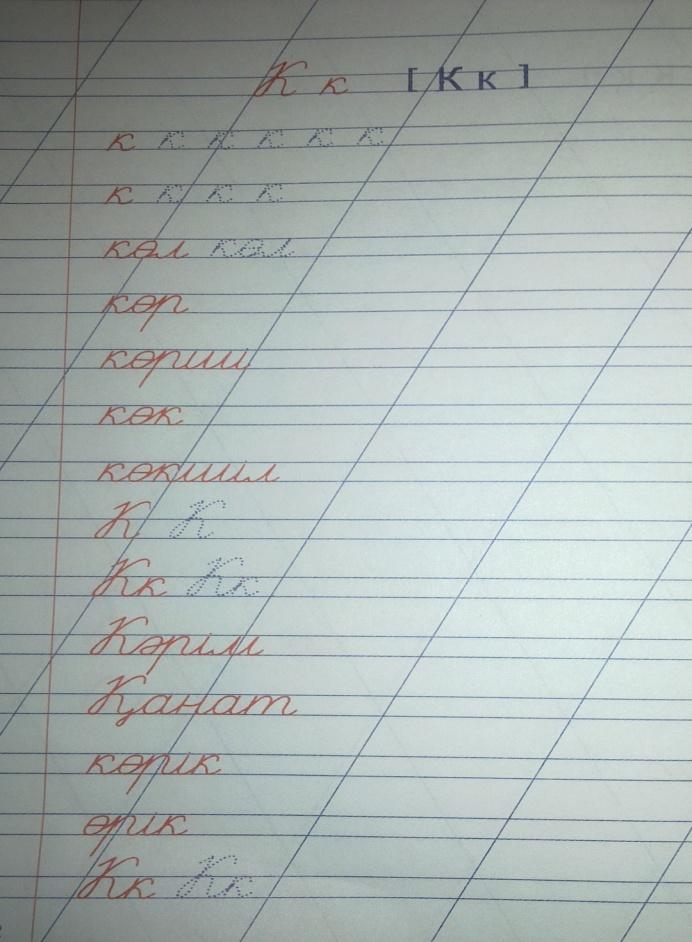 К к [ К к ]
к к к к к к
к к к к
көл көл
көр
көрші
көк
көкшіл
К К
Кк Кк
Кәрім
Қанат
көрік
өрік
Кк Кк